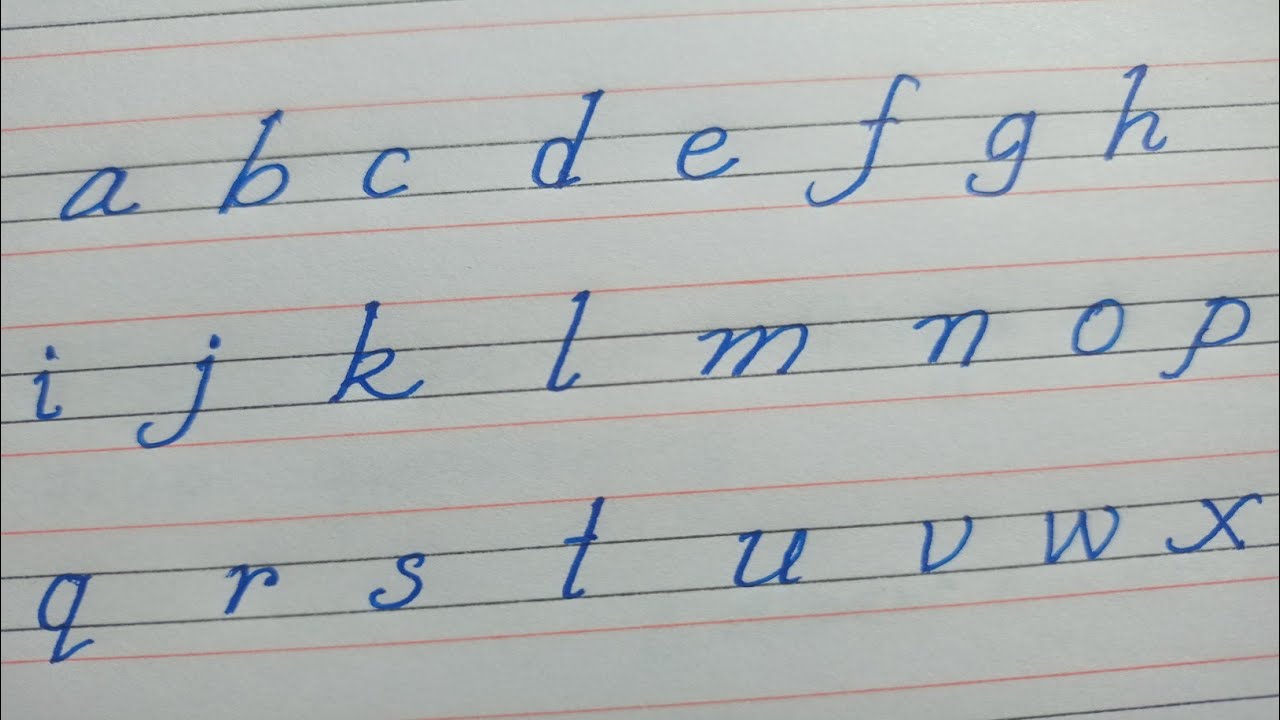 a b c d e f g h
i j k l m n o p
q r s t u v w x